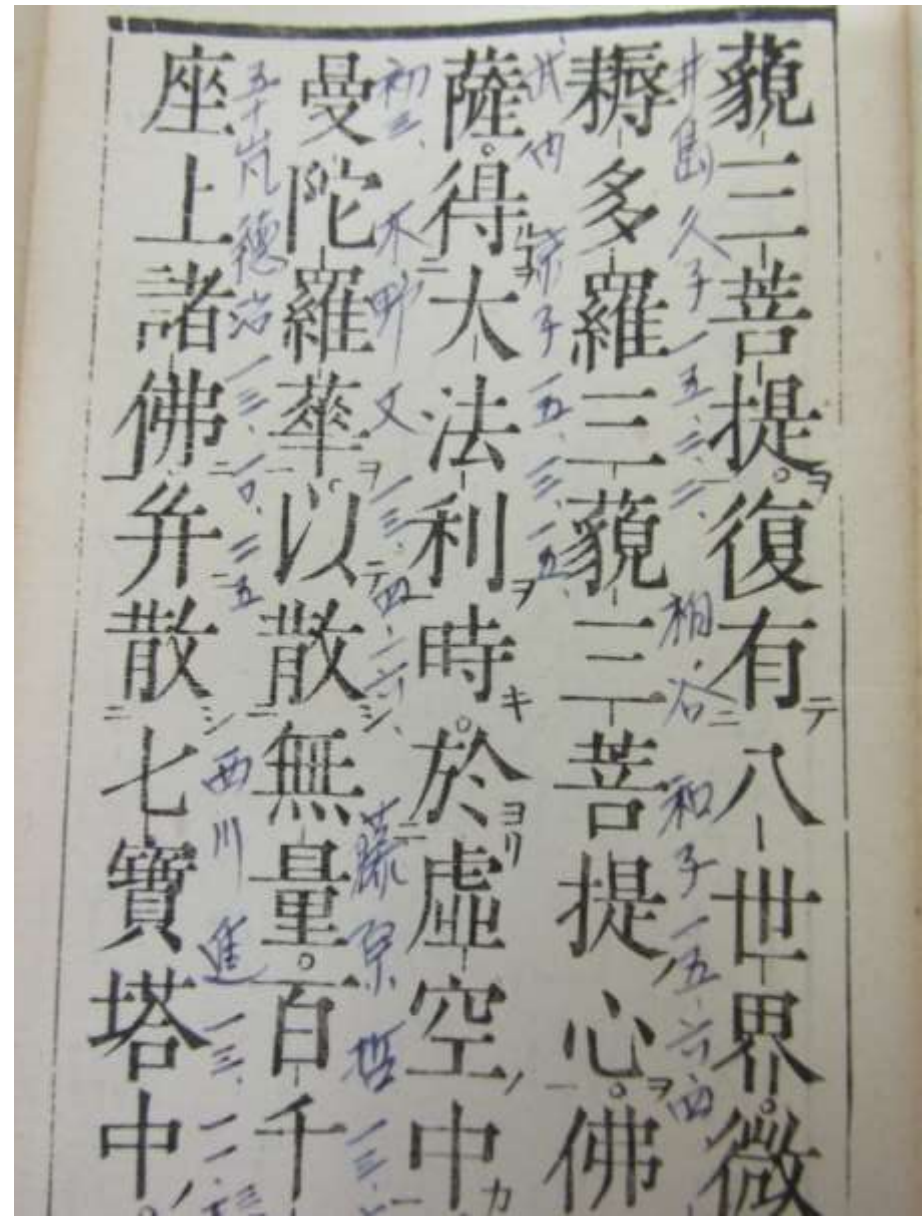 藐三菩提。復有八世界。微
井島久子一五、三、二、 和子一五、六、四
耨多羅三藐三菩提心。佛
子一五、三、一五、
薩。得大法利時。於虛空中
木野 文 一三、四、二六、 藤原 哲 一三、
曼陀羅華。以散無量。百千
五十嵐徳治一三、一〇、二五 西川 進 一三、一一、
座上諸佛幷散七寶塔中